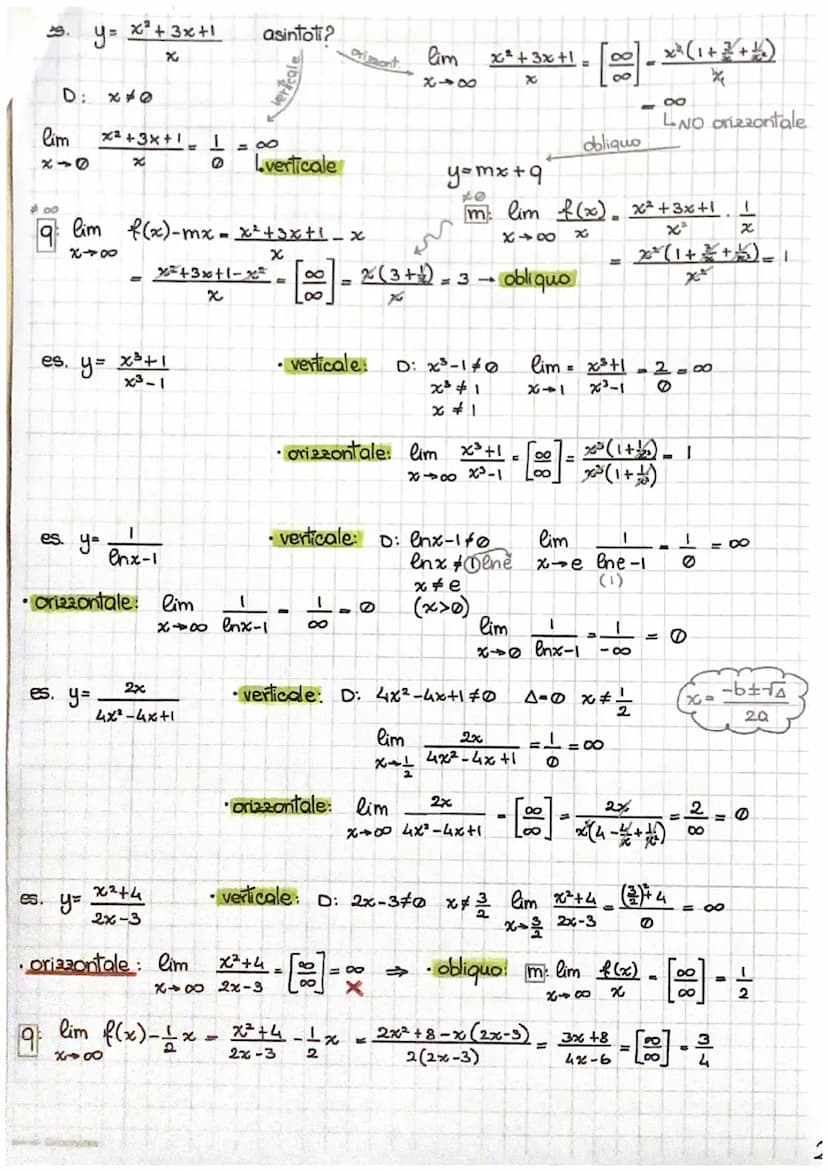 es. y= x²+3x+1/x asintoti?
verticale
orizzont.
lim x→∞ x²+3x+1/x = [∞/∞] = x²(1+3/x+1/x²)/x
D: x≠0
= ∞
↳NO orizzontale
lim x→0 x²+3x+1/x = 1/0 = ∞
↳verticale
obliquo
y=mx+q
≠0
m: lim x→∞ f(x)/x = x²+3x+1/x² · 1/x
= x²(1+3/x+1/x²)/x² = 1
≠∞
q: lim x→∞ f(x)-mx = x²+3x+1/x - x
= x²+3x+1-x²/x = [∞/∞] = x(3+1/x)/x = 3 → obliquo
es. y= x³+1/x³-1
• verticale: D: x³-1≠0 lim x→1 = x³+1/x³-1 = 2/0 = ∞
x³≠1
x≠1
• orizzontale: lim x→∞ x³+1/x³-1 = [∞/∞] = x³(1+1/x³)/x³(1+1/x³) = 1
es. y= 1/lnx-1
• verticale: D: lnx-1≠0 lim x→e 1/lne-1 = 1/0 = ∞
(1)
lnx≠1 lne
x≠e
(x>0)
• orizzontale: lim x→∞ 1/lnx-1 = 1/∞ = 0
lim x→0 1/lnx-1 = 1/-∞ = 0
es. y= 2x/4x²-4x+1
• verticale: D: 4x²-4x+1≠0 Δ=0 x≠1/2
x= -b±√Δ/2a
lim x→1/2 2x/4x²-4x+1 = 1/0 = ∞
• orizzontale: lim x→∞ 2x/4x²-4x+1 = [∞/∞] = 2x/x²(4-4/x+1/x²) = 2/∞ = 0
es. y= x²+4/2x-3
• verticale: D: 2x-3≠0 x≠3/2 lim x→3/2 x²+4/2x-3 = (3/2)²+4/0 = ∞
• orizzontale: lim x→∞ x²+4/2x-3 = [∞/∞] = ∞ ⇒ • obliquo: m: lim x→∞ f(x)/x = [∞/∞] = 1/2
×
q: lim x→∞ f(x)-1/2 x = x²+4/2x-3 - 1/2 x = 2x²+8-x(2x-3)/2(2x-3) = 3x+8/4x-6 = [∞/∞] = 3/4
2